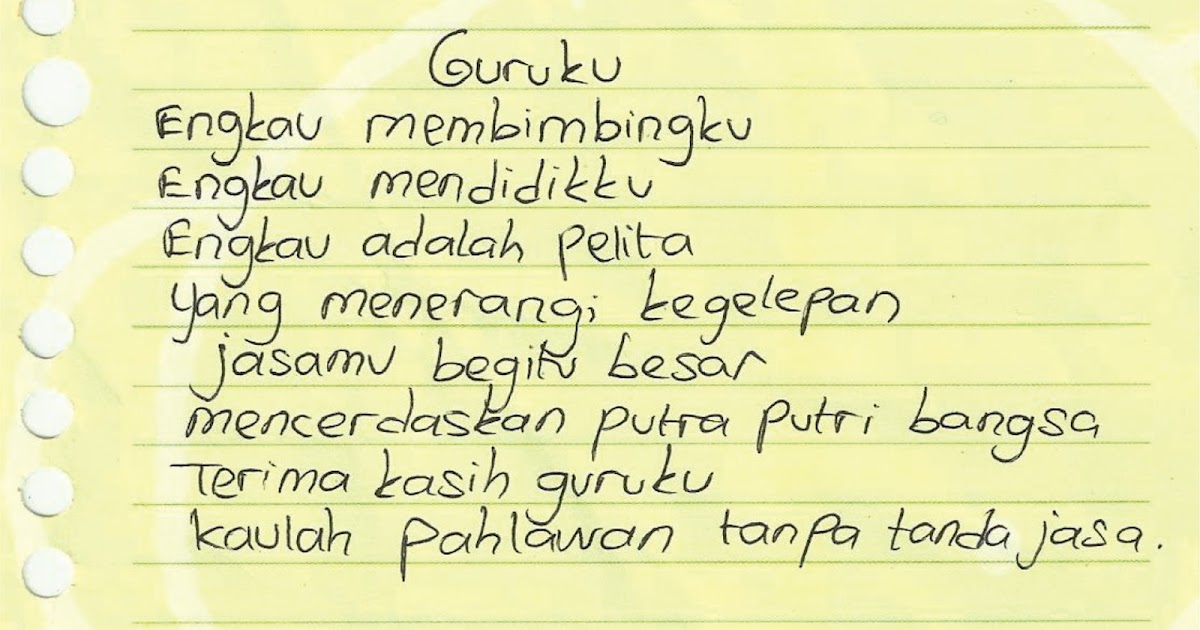 Guruku
Engkau membimbingku
Engkau mendidikku
Engkau adalah pelita
yang menerangi kegelepan
jasamu begitu besar
mencerdaskan putra putri bangsa
Terima kasih guruku
kaulah pahlawan tanpa tanda jasa.